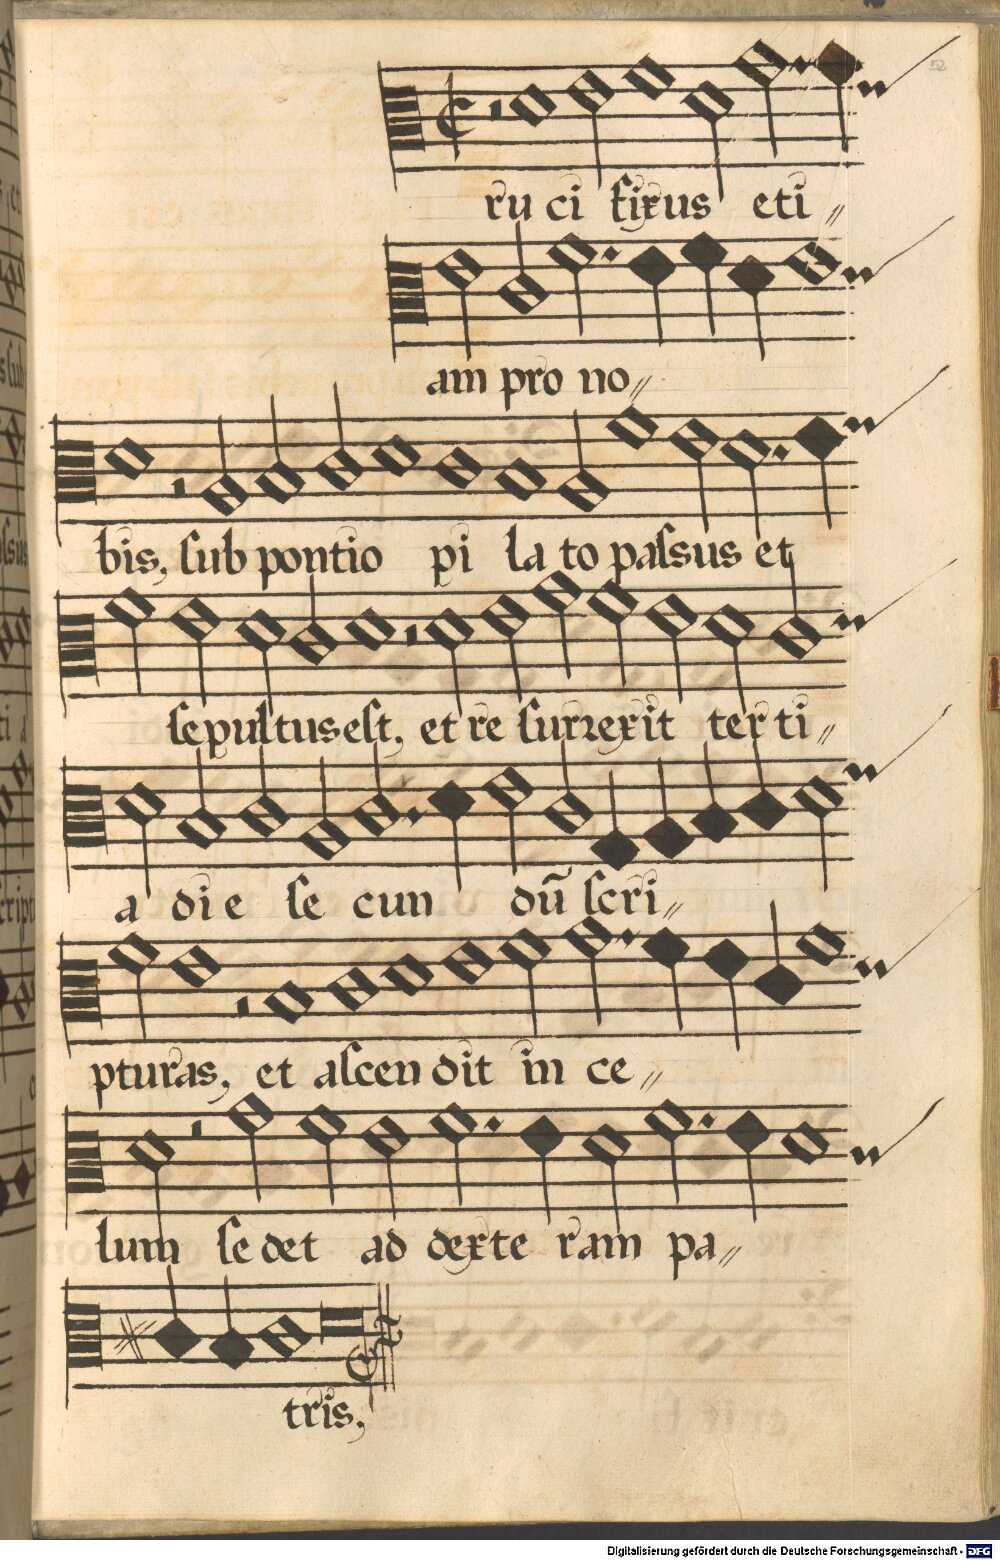 52
ru ci fixus eti〃
am pro no〃
bis, ſub pontio pi la to paſsus et
ſepultus eſt, et re ſurrexit ter ti〃
a die ſe cun dū ſcri〃
pturas, et aſcen dit in ce〃
lum ſe det ad dexte ram pa〃
tris,
Digitalisierung gefördert durch die Deutsche Forschungsgemeinschaft - DFG